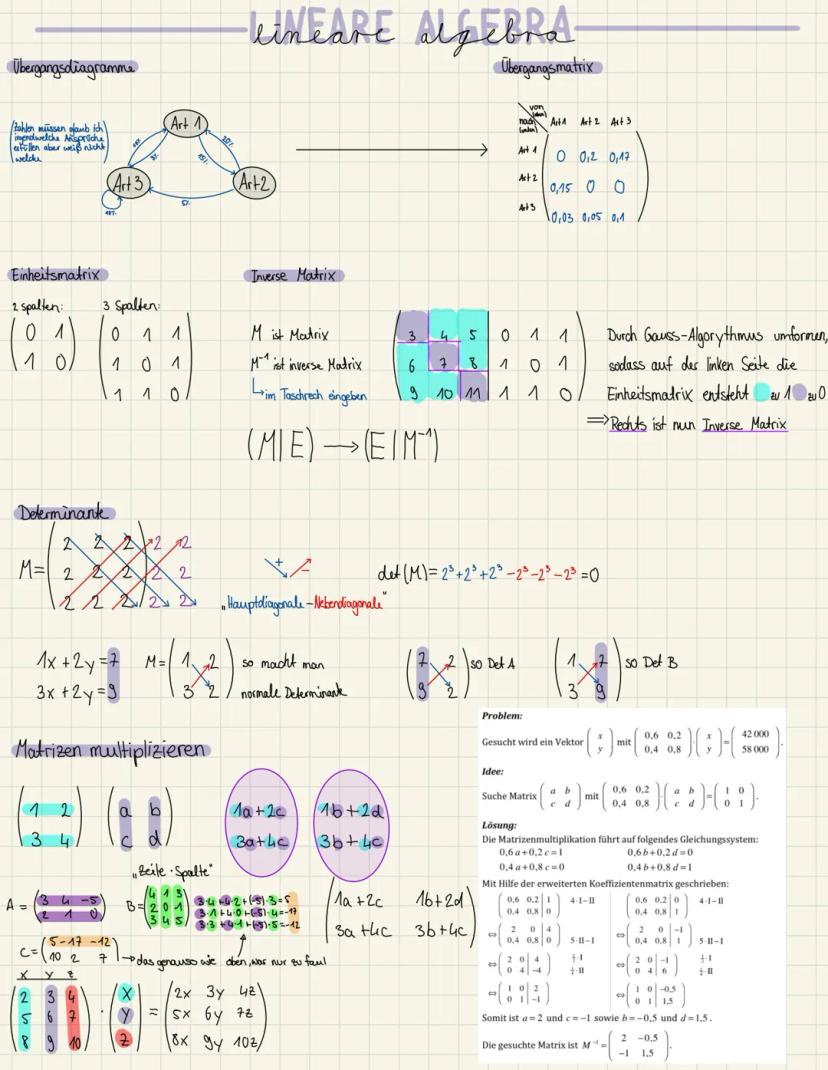 LINEARE ALGEBRA
lineare algebra
Übergangsdiagramme
Übergangsmatrix
(Zahlen müssen glaub ich
irgendwelche Ansprüche
erfüllen aber weiß nicht
welche
Art 1
Art 3
Art 2
5%
von (oben)
nach (unten)
Art 1 Art 2 Art 3
Art 1 0 0,2 0,17
Art 2 0,15 0 0
Art 3 0,03 0,05 0,1
Einheitsmatrix
2 spalten:
0 1
1 0
3 Spalten:
0 1 1
1 0 1
1 1 0
Inverse Matrix
M ist Matrix
M⁻¹ ist inverse Matrix
↳ im Taschrech eingeben
(M|E) → (E|M⁻¹)
3 4 5 0 1 1
6 7 8 1 0 1
9 10 11 1 1 0
Durch Gauss-Algorythmus umformen,
sodass auf der linken Seite die
Einheitsmatrix entsteht zu 1 zu 0
⇒ Rechts ist nun Inverse Matrix
Determinante
M=
2 2 2 2 2
2 2 2 2 2
2 2 2 2 2
+ −
„Hauptdiagonale - Nebendiagonale"
det (M) = 2³ + 2³ + 2³ - 2³ - 2³ - 2³ = 0
1x + 2y = 7
3x + 2y = 9
M= 1 2
3 2
so macht man
normale Determinante
7 2
9 2
so Det A
1 7
3 9
so Det B
Matrizen multiplizieren
1 2
3 4
a b
c d
1a + 2c 1b + 2d
3a + 4c 3b + 4c
„Zeile · Spalte"
A = 3 4 -5
2 1 0
B = 4 1 3
2 0 1
3 4 5
3·4+4·2+(-5)·3=5
3·1+4·0+(-5)·4=-17
3·3+4·1+(-5)·5=-12
1a+2c 1b+2d
3a+4c 3b+4c
C = 5 -17 -12
10 2 7
→ das genauso wie oben, war nur zu faul
x y z
2 3 4
5 6 7
8 9 10
·
x
y
z
=
2x 3y 4z
5x 6y 7z
8x 9y 10z
Problem:
Gesucht wird ein Vektor (x y) mit (0,6 0,2 0,4 0,8)·(x y)=(42 000 58 000).
Idee:
Suche Matrix (a b c d) mit (0,6 0,2 0,4 0,8)·(a b c d)=(1 0 0 1).
Lösung:
Die Matrizenmultiplikation führt auf folgendes Gleichungssystem:
0,6 a+0,2 c=1 0,6 b+0,2 d=0
0,4 a+0,8 c=0 0,4 b+0,8 d=1
Mit Hilfe der erweiterten Koeffizientenmatrix geschrieben:
0,6 0,2 | 1 4·I−II 0,6 0,2 | 0 4·I−II
0,4 0,8 | 0 0,4 0,8 | 1
⇔ 2 0 | 4 ⇔ 2 0 | −1
0,4 0,8 | 0 5·II−I 0,4 0,8 | 1 5·II−I
⇔ 2 0 | 4 ½·I ⇔ 2 0 | −1 ½·I
0 4 | −4 ¼·II 0 4 | 6 ¼·II
⇔ 1 0 | 2 ⇔ 1 0 | −0,5
0 1 | −1 0 1 | 1,5
Somit ist a=2 und c=−1 sowie b=−0,5 und d=1,5.
Die gesuchte Matrix ist M⁻¹=(2 −0,5 −1 1,5).